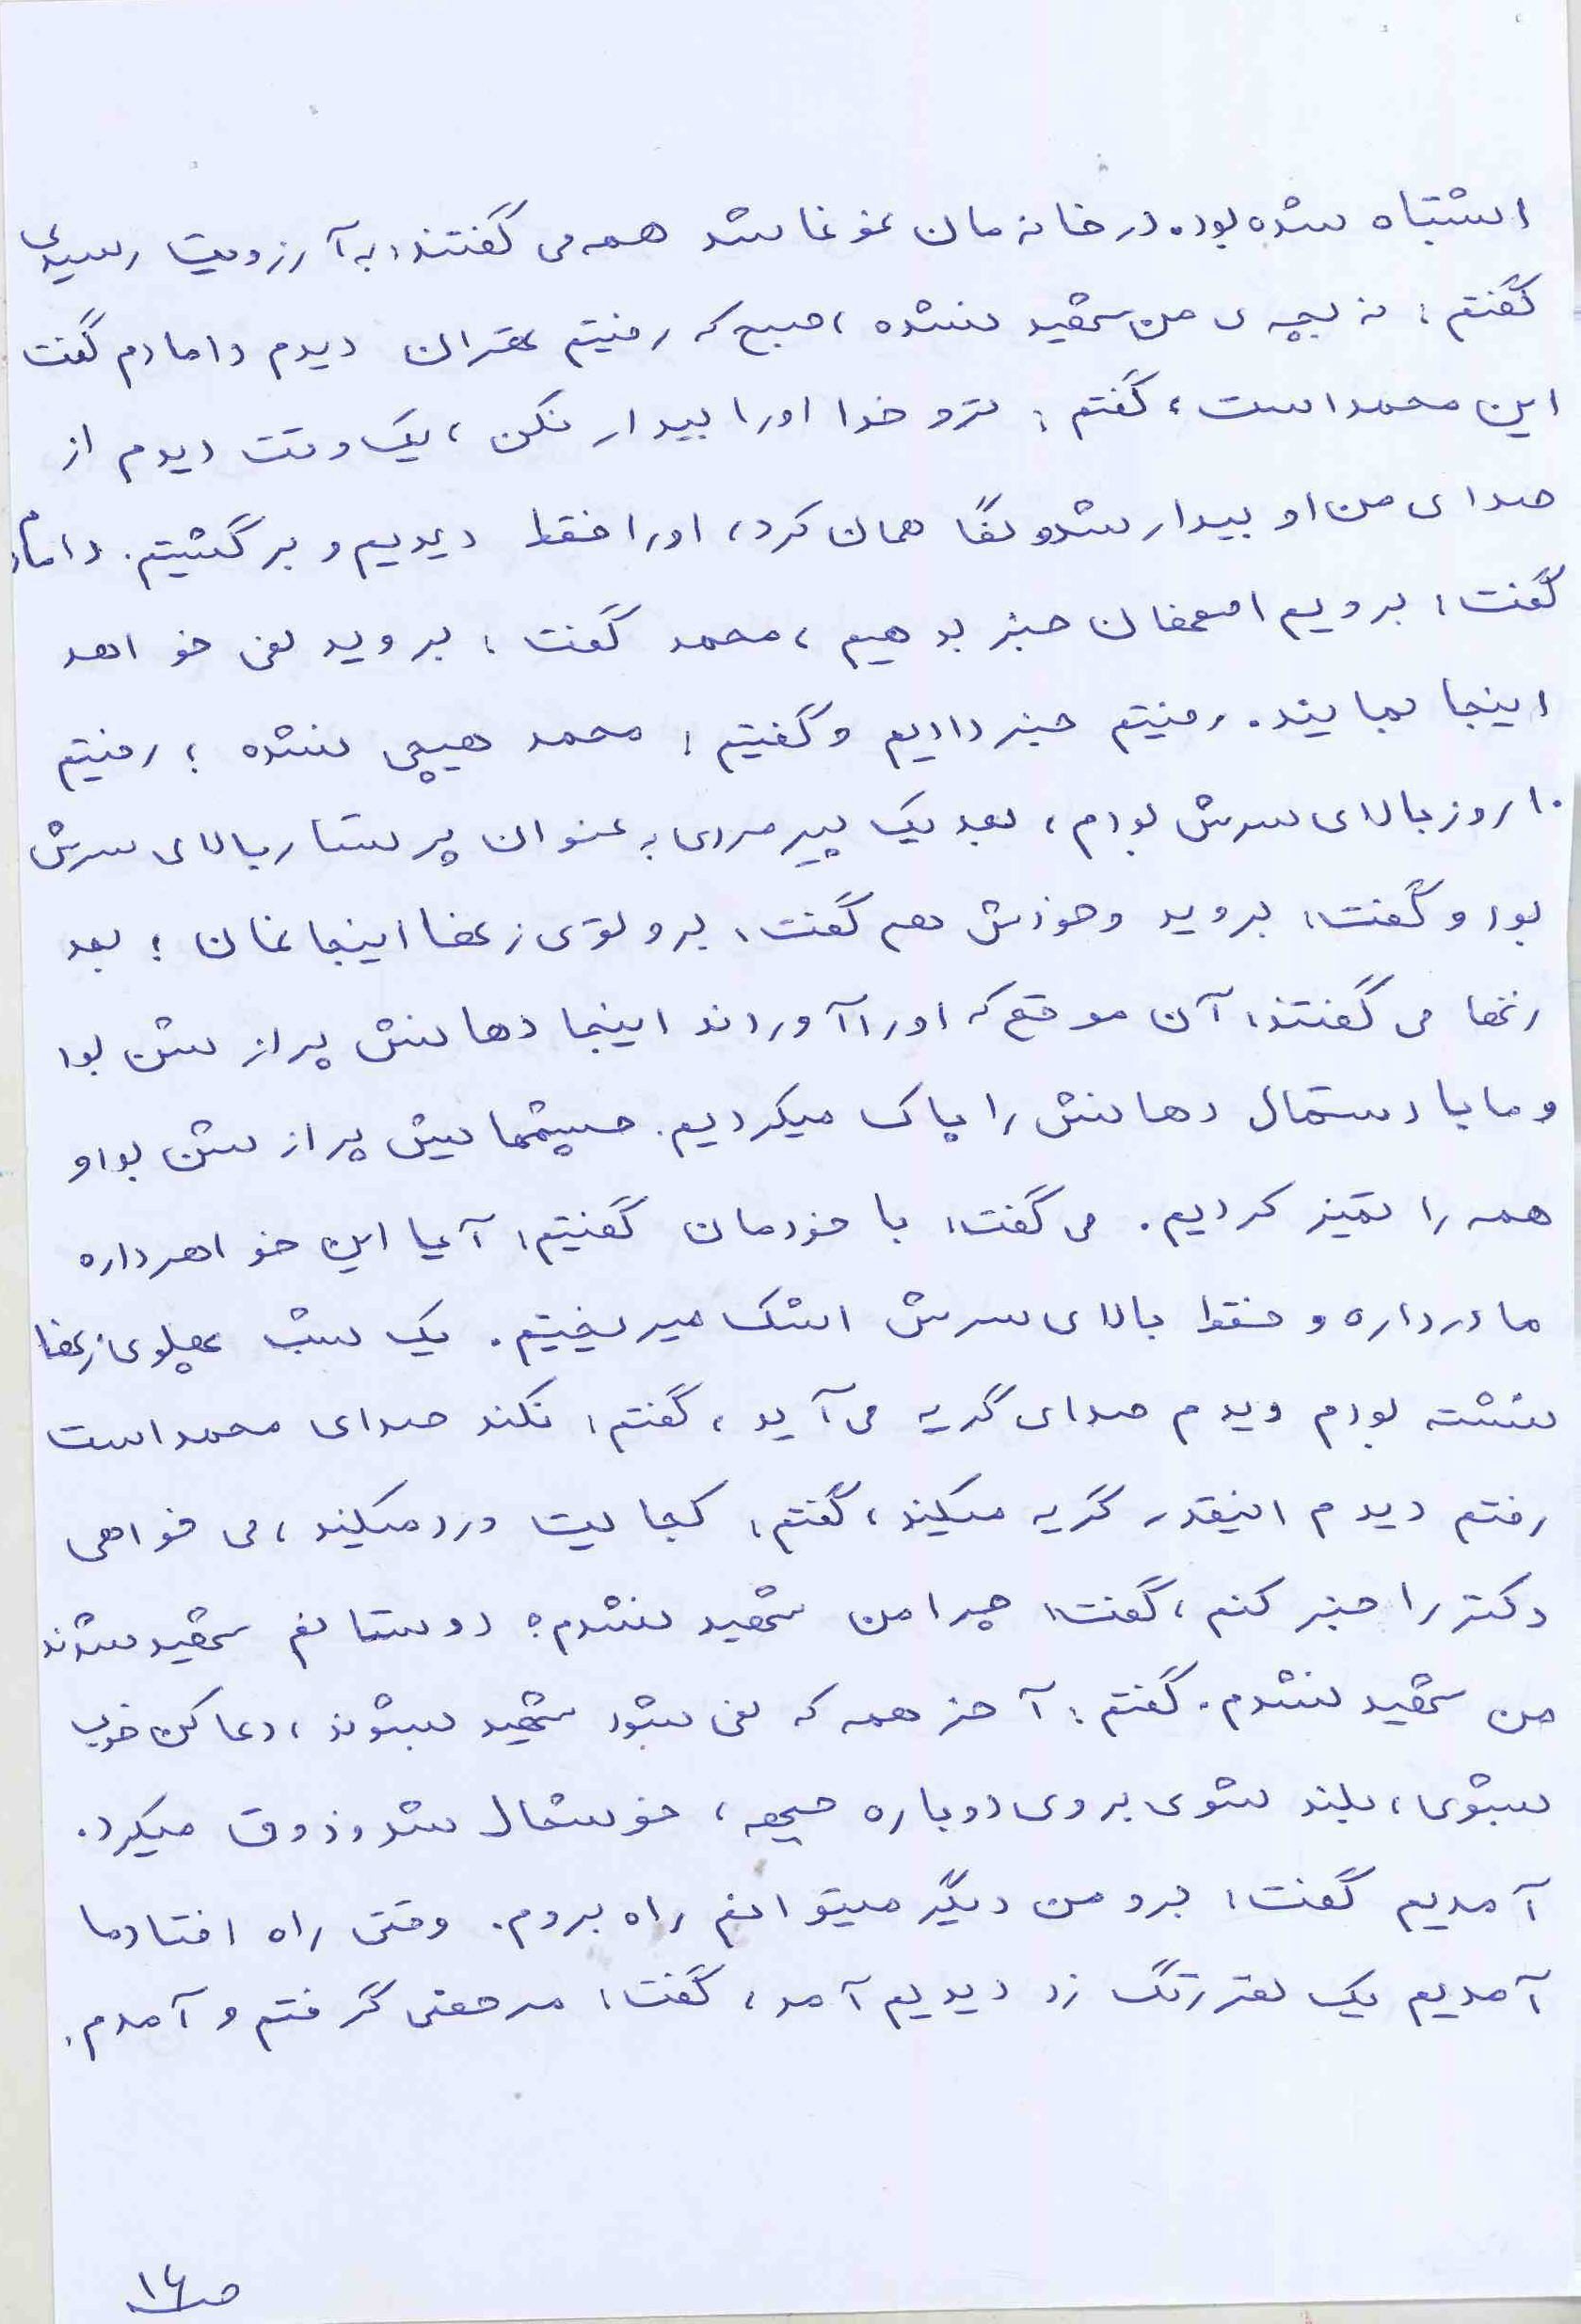 اشتباه شده بود. در خانه مان غوغا شد همه می گفتند: به آرزویت رسیدی
گفتم: نه بچه ی من شهید نشده، صبح که رفتیم تهران دیدم دامادم گفت
این محمد است، گفتم: ترو خدا او را بیدار نکن، یک وقت دیدم از
صدای من او بیدار شد و نگا همان کرد، او را فقط دیدیم و برگشتیم. دامادم
گفت: برویم اصفهان خبر بدهیم، محمد گفت: بروید نمی خواهد
اینجا بمانید. رفتیم خبر دادیم و گفتیم: محمد هیچی نشده؛ رفتیم
۱۰ روز بالای سرش بودم، بعد یک پیرمردی به عنوان پرستار بالای سرش
بود و گفت: بروید و خودش هم گفت: برو توی زنها اینجا نمان؛ بعد
زنها می گفتند: آن موقع که او را آوردند اینجا دهانش پر از شن بود
و ما با دستمال دهانش را پاک میکردیم. چشمهایش پر از شن بود و
همه را تمیز کردیم. می گفت: با خودمان گفتیم: آیا این خواهر داره
مادر داره و فقط بالای سرش اشک میریختیم. یک شب پهلوی زنها
نشسته بودم دیدم صدای گریه می آید، گفتم: نکند صدای محمد است
رفتم دیدم اینقدر گریه میکند، گفتم: کجایت درد میکند، می خواهی
دکتر را خبر کنم، گفت: چرا من شهید نشدم؟ دوستانم شهید شدند
من شهید نشدم. گفتم: آخر همه که نمی شود شهید بشوند، دعا کن خوب
بشوی، بلند شوی بروی دوباره جبهه، خوشحال شد و ذوق میکرد.
آمدیم گفت: برو من دیگر میتوانم راه بروم. وقتی راه افتاد ما
آمدیم یک نفر زنگ زد دیدیم آمد، گفت: مرخصی گرفتم و آمدم.
ص ۱۶